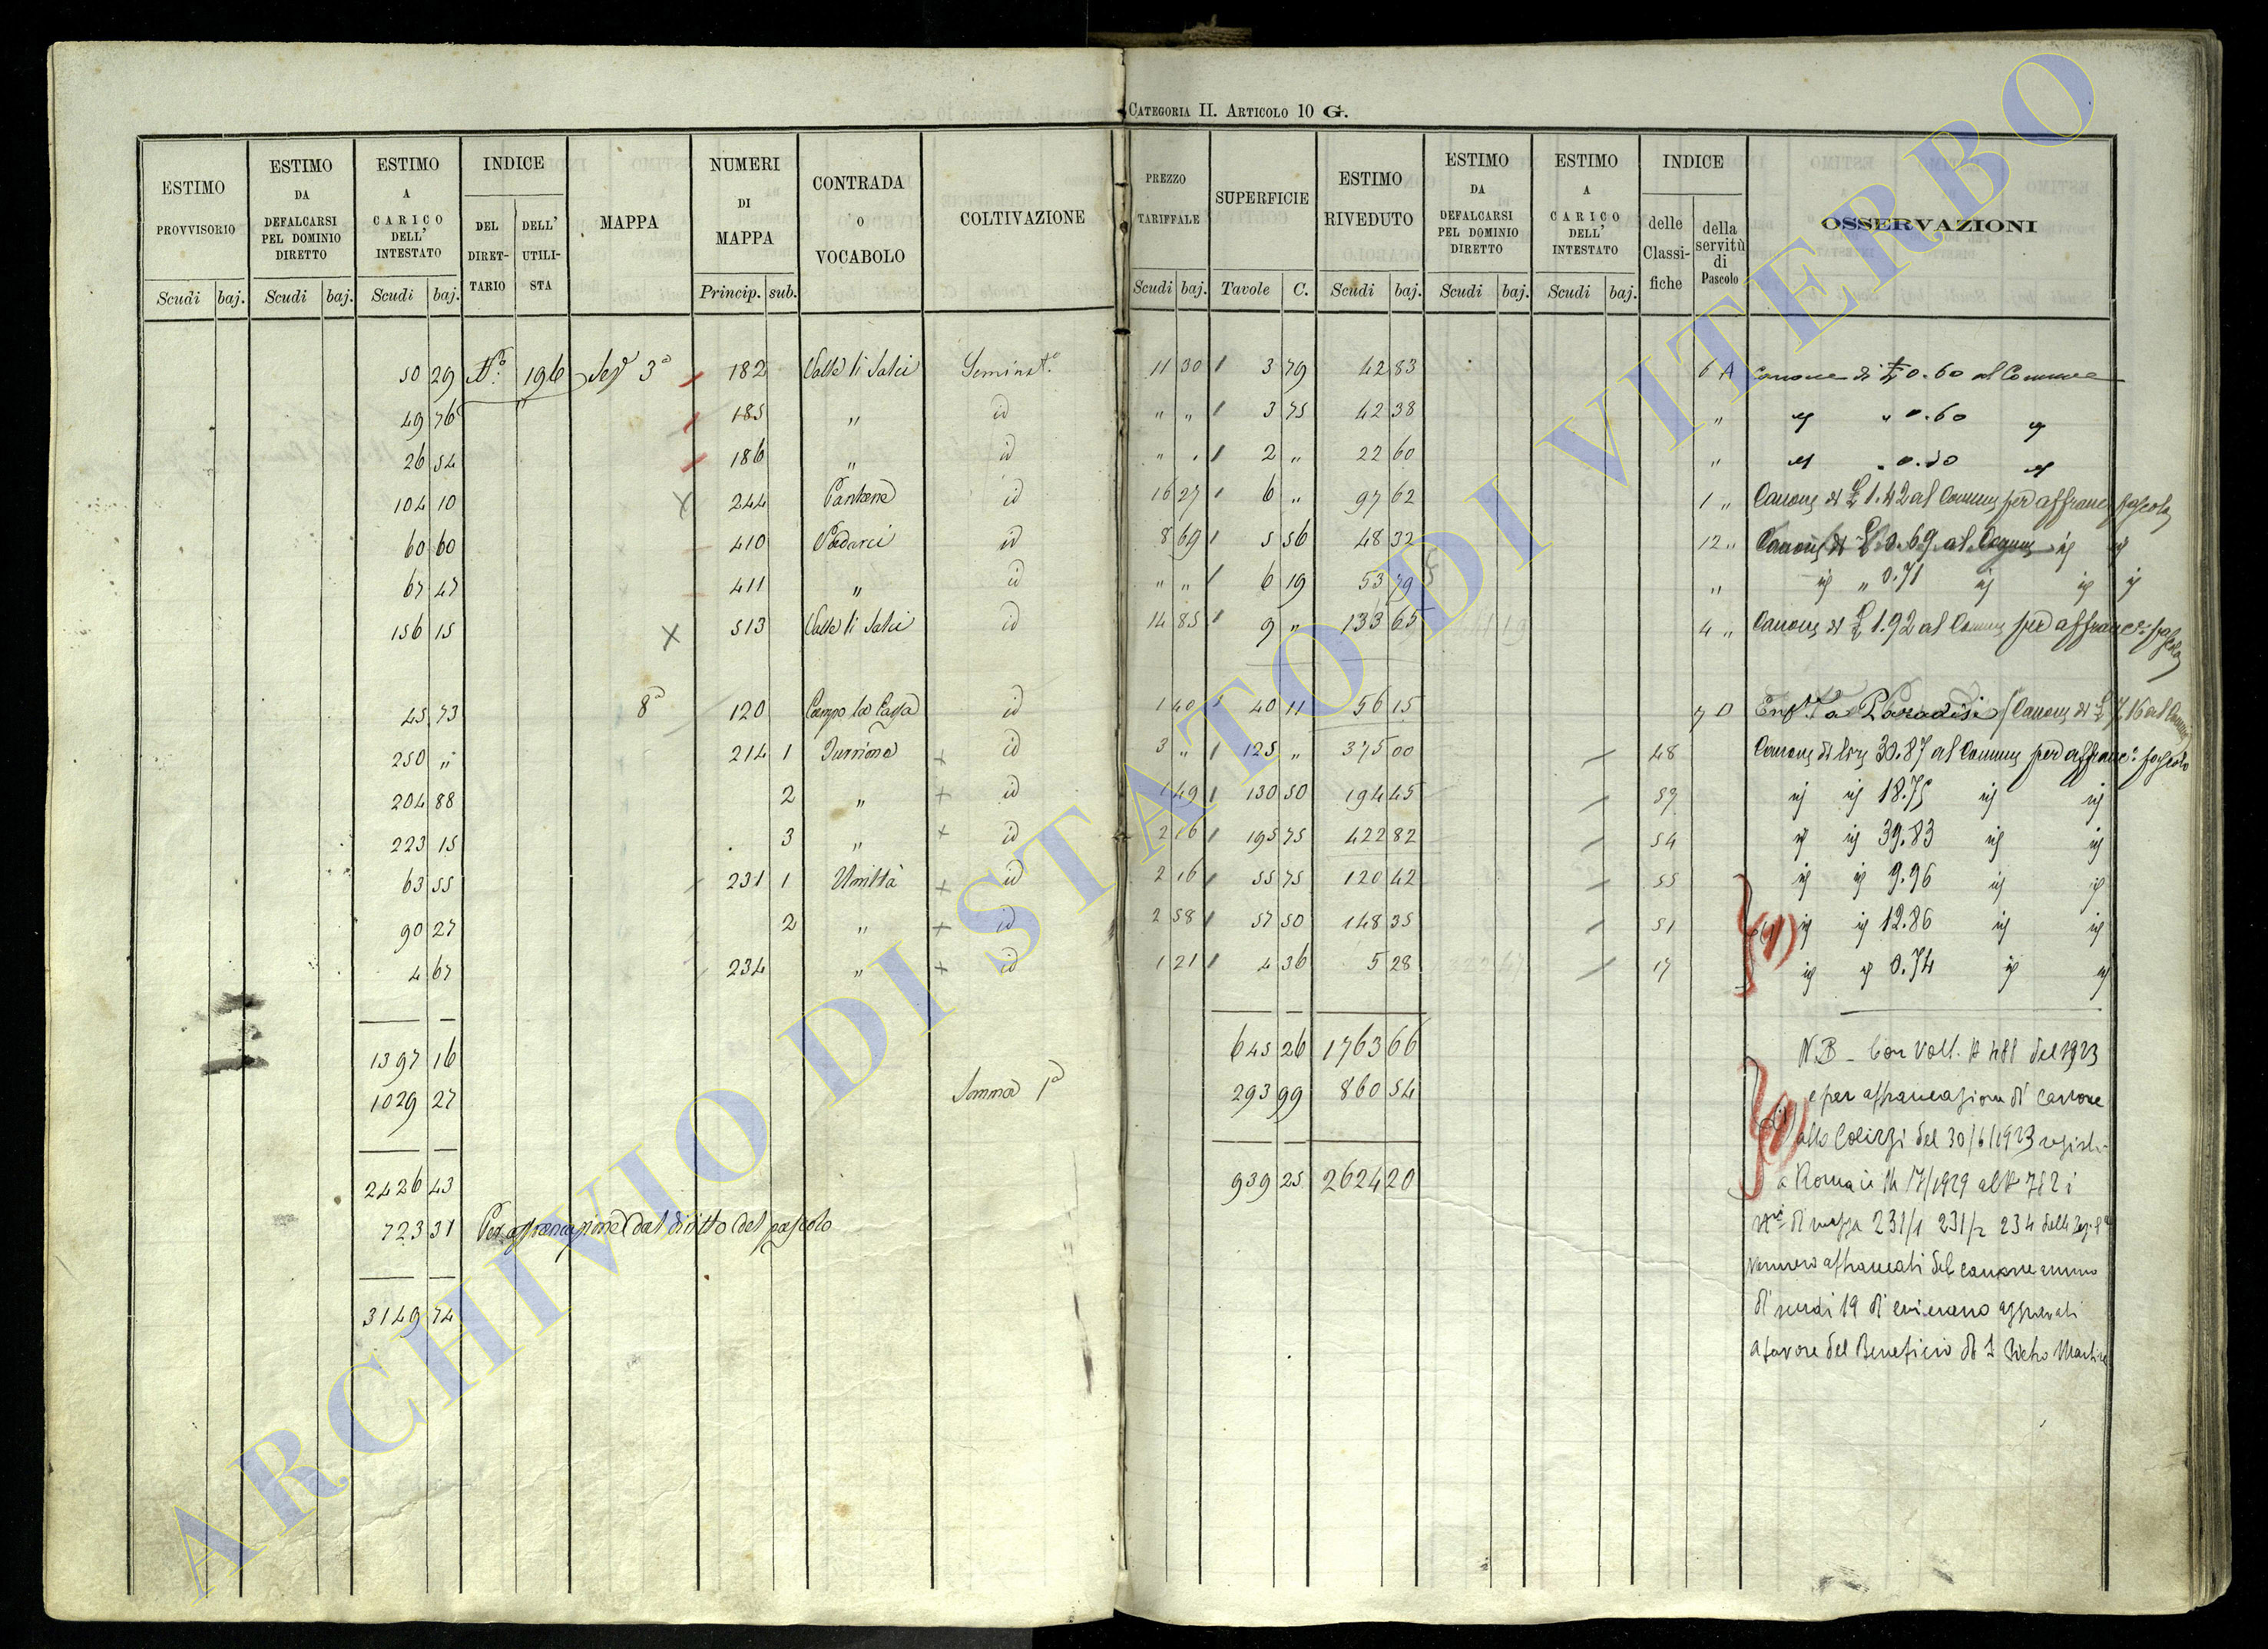 CATEGORIA II. ARTICOLO 10 G.
ESTIMO PROVVISORIO | ESTIMO DA DEFALCARSI PEL DOMINIO DIRETTO | ESTIMO A CARICO DELL' INTESTATO | INDICE DEL DIRETTARIO | DELL' UTILISTA | MAPPA | NUMERI DI MAPPA | CONTRADA O VOCABOLO | COLTIVAZIONE | PREZZO TARIFFALE | SUPERFICIE | ESTIMO RIVEDUTO | ESTIMO DA DEFALCARSI PEL DOMINIO DIRETTO | ESTIMO A CARICO DELL' INTESTATO | INDICE delle Classifiche | della servitù di Pascolo | OSSERVAZIONI
Scudi baj. Scudi baj. Scudi baj. Princip. sub. Scudi baj. Tavole C. Scudi baj. Scudi baj. Scudi baj.
50 29 N.º 196 Sez 3ª 182 Valle li Salci Seminat.º 11 30 3 79 42 83 6 A Canone di £ 0.60 al Comune
49 76 " 185 " id " " 3 75 42 38 " id " 0.60 id
26 54 186 " id " " 2 " 22 60 " id id
104 10 244 Pantane id 16 27 6 " 97 62 1 " Canone di £ 1.42 al Comune per affranc pascolo
60 60 410 id 8 69 5 56 48 32 12 " Canone di £ 0.69 al Comune id id
67 47 411 " id " " 6 19 53 79 " id " 0.71 id id id
156 15 513 Valle li Salci id 14 85 9 " 133 65 4 " Canone di £ 1.92 al Comune per affranc.e pascolo
45 73 8ª 120 Campo la Cassa id 1 40 40 11 56 15 7 D Paradisi Canone di £ al Comune
250 " 214 1 id 3 " 125 " 375 00 48 Canone di lire 30.87 al Comune per affranc.e pascolo
204 88 2 " id 1 49 130 50 194 45 59 id id 18.75 id id
223 15 3 " id 2 16 195 75 422 82 54 id id 39.83 id id
63 55 231 1 id 2 16 55 75 120 42 55 id id 9.96 id id
90 27 2 " id 2 58 57 50 148 35 51 (1) id id 12.86 id id
4 67 234 " id 1 21 4 36 5 28 17 id id 0.74 id id
1397 16 645 26 1763 66 N.B - Con Volt. N 488 del 1923
1029 27 Somma 1ª 293 99 860 54 e per affrancazione di canone
(1) atto Colizzi del 30/6/1923 registr
2426 43 939 25 2624 20 a Roma
723 31 Per affrancazione dal diritto del pascolo
di mappa 231/1 231/2 234 della Sez. 8ª
vennero affrancati del canone annuo
3149 74
di scudi 19
a favore del Beneficio di S Pietro Martire
ARCHIVIO DI STATO DI VITERBO